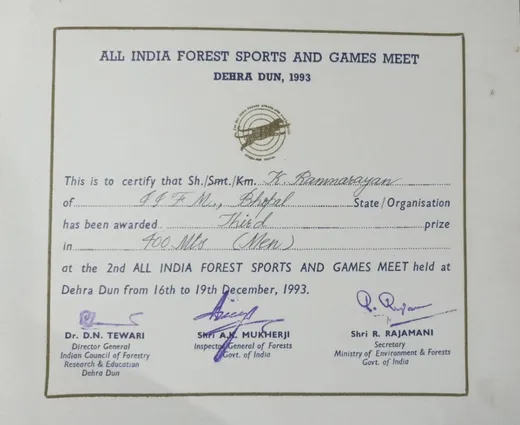 ALL INDIA FOREST SPORTS AND GAMES MEET
DEHRA DUN, 1993
This is to certify that Sh./Smt./Km. K. Ramnarayan
of I I F M., Bhopal State/Organisation
has been awarded Third prize
in 400 Mts (Men)
at the 2nd ALL INDIA FOREST SPORTS AND GAMES MEET held at
Dehra Dun from 16th to 19th December, 1993.
Dr. D.N. TEWARI
Director General
Indian Council of Forestry
Research & Education
Dehra Dun
Shri A.K. MUKHERJI
Inspector General of Forests
Govt. of India
R. Rajam
Shri R. RAJAMANI
Secretary
Ministry of Environment & Forests
Govt. of India